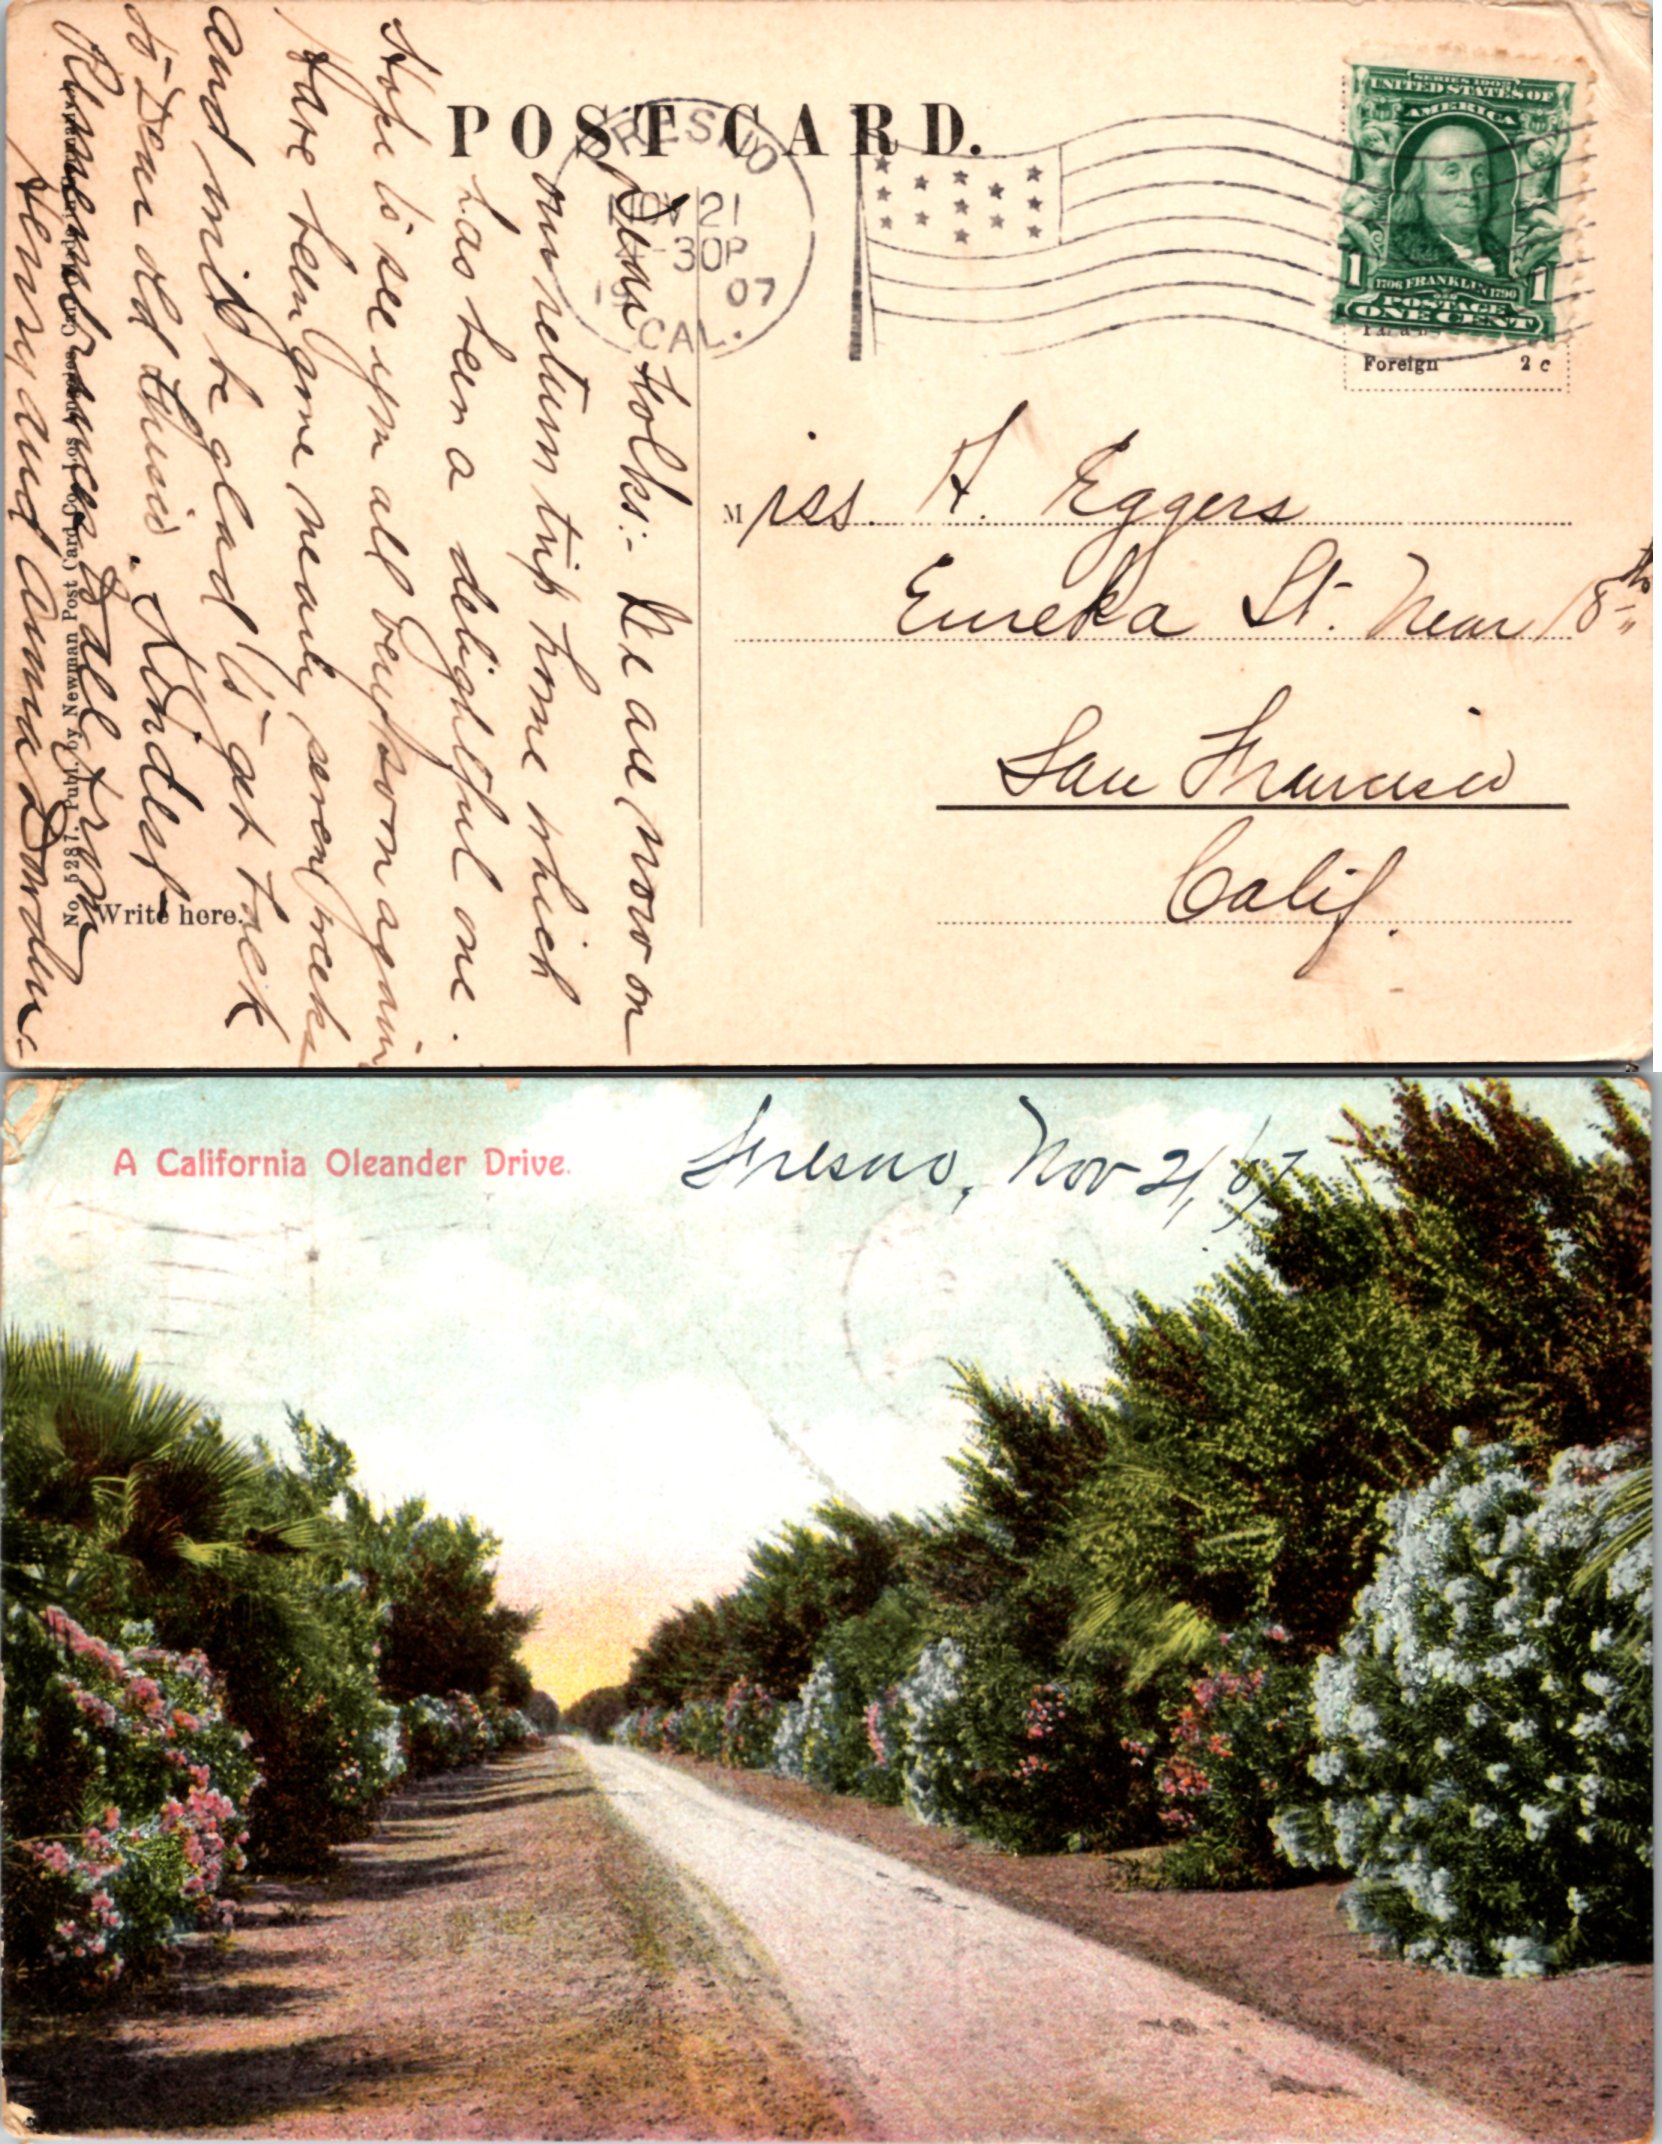 POST CARD.
FRESNO
NOV 21
-30P
1907
CAL.
SERIES 1902
UNITED STATES OF
AMERICA
1706 FRANKLIN 1790
POSTAGE
1 ONE CENT 1
Foreign 2 c
Miss. H. Eggers
Eureka St. Near 18th
San Francisco
Calif.
Dear Folks:- We are now on
our return trip home which
has been a delightful one.
Hope to see you all very soon again
Have been gone nearly seven weeks
and will be glad to get back
to Dear old Frisco. Kindest
Remembrances to all from
Henry and Anna
Write here.
No. 5287. Publ. by Newman Post Card Co., Los Angeles, Cal.
A California Oleander Drive.
Fresno, Nov 21, '07